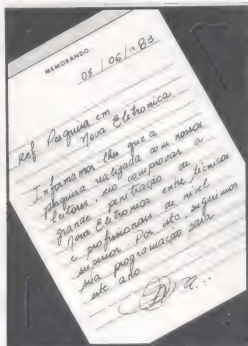 MEMORANDO
05/06/1983
Ref Pesquisa em
Nova Eletronica
Informamos lhes que a
pesquisa realizada com nossos
leitores, veio comprovar a
grande penetração de
Nova Eletronica entre técnicos
e profissionais de nível
superior. Por isto sugerimos
sua programação para
este ano